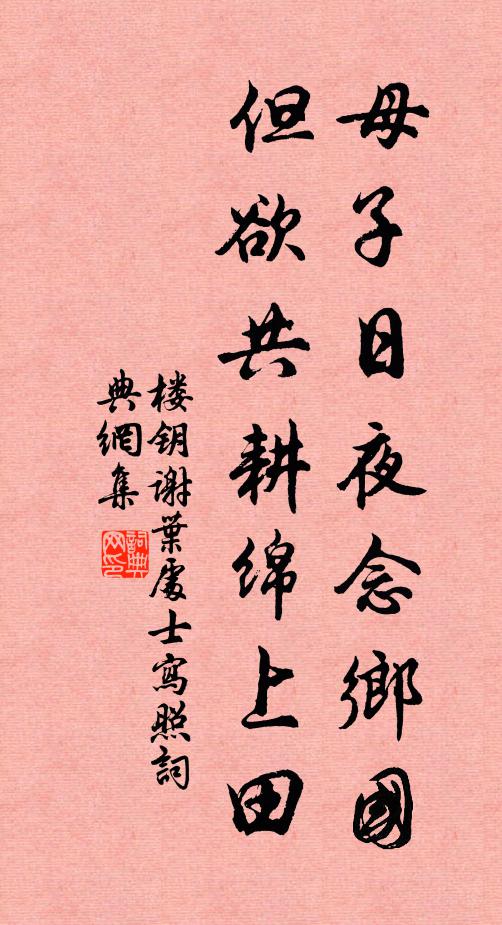 母子日夜念鄉國
但欲共耕绵上田
楼钥谢葉處士寫照詞
典網集
詞典
网印